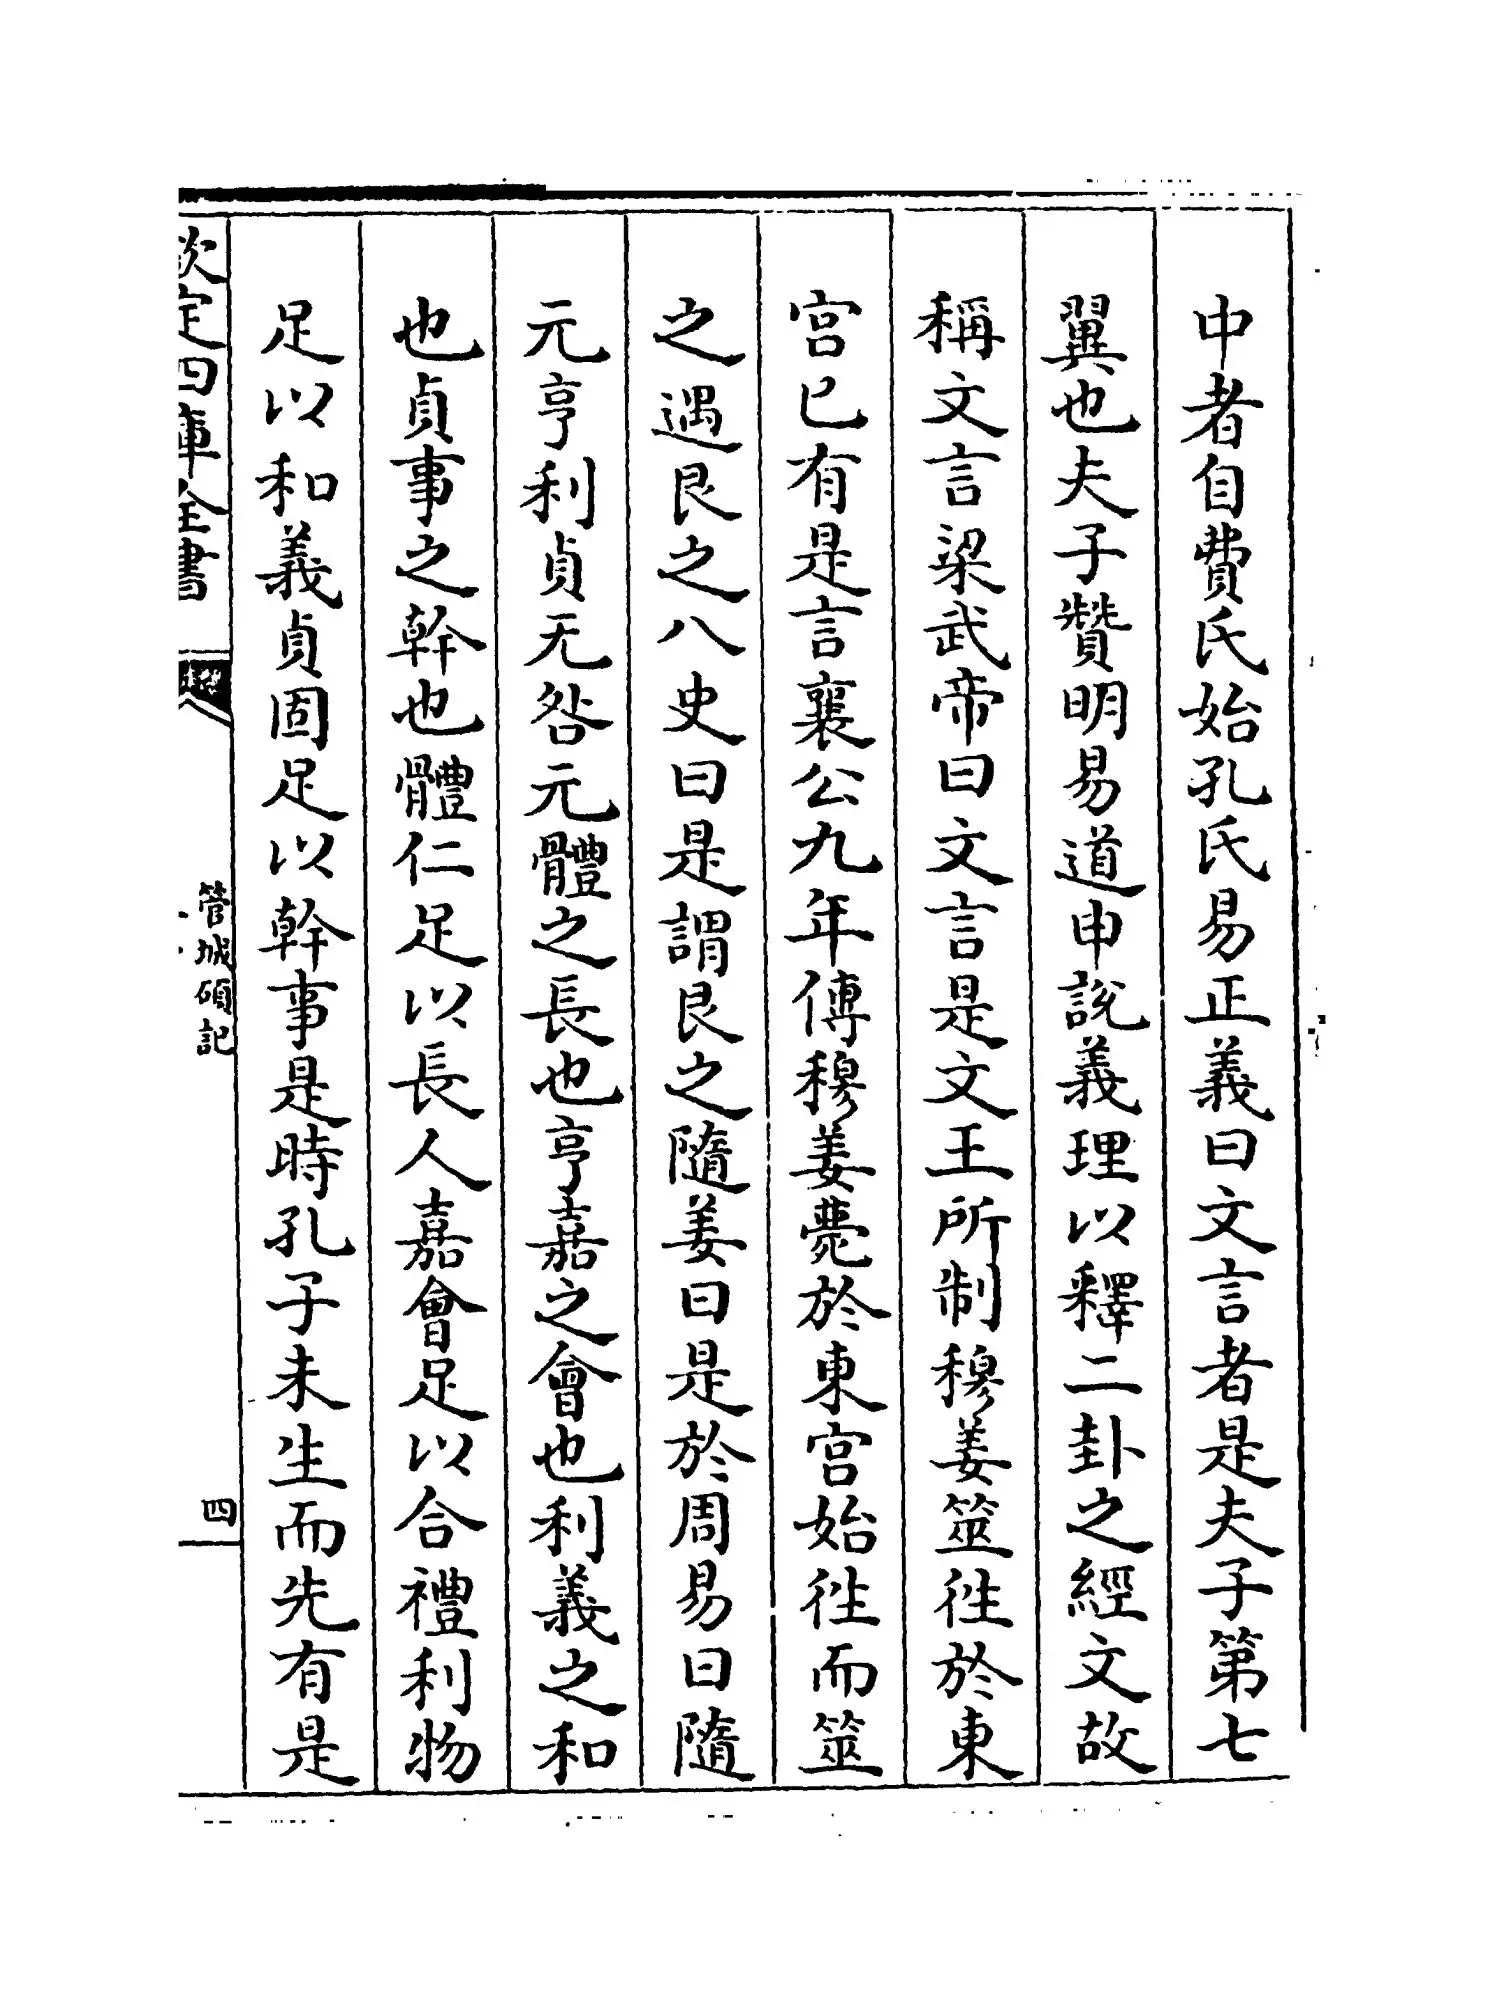 中者自費氏始孔氏易正義曰文言者是夫子第七
翼也夫子贊明易道申說義理以釋二卦之經文故
稱文言梁武帝曰文言是文王所制穆姜筮徃於東
宫已有是言襄公九年傳穆姜薨於東宫始徃而筮
之遇艮之八史曰是謂艮之隨姜曰是於周易曰隨
元亨利貞无咎元體之長也亨嘉之會也利義之和
也貞事之幹也體仁足以長人嘉會足以合禮利物
足以和義貞固足以幹事是時孔子未生而先有是
欽定四庫全書
管城碩記
四